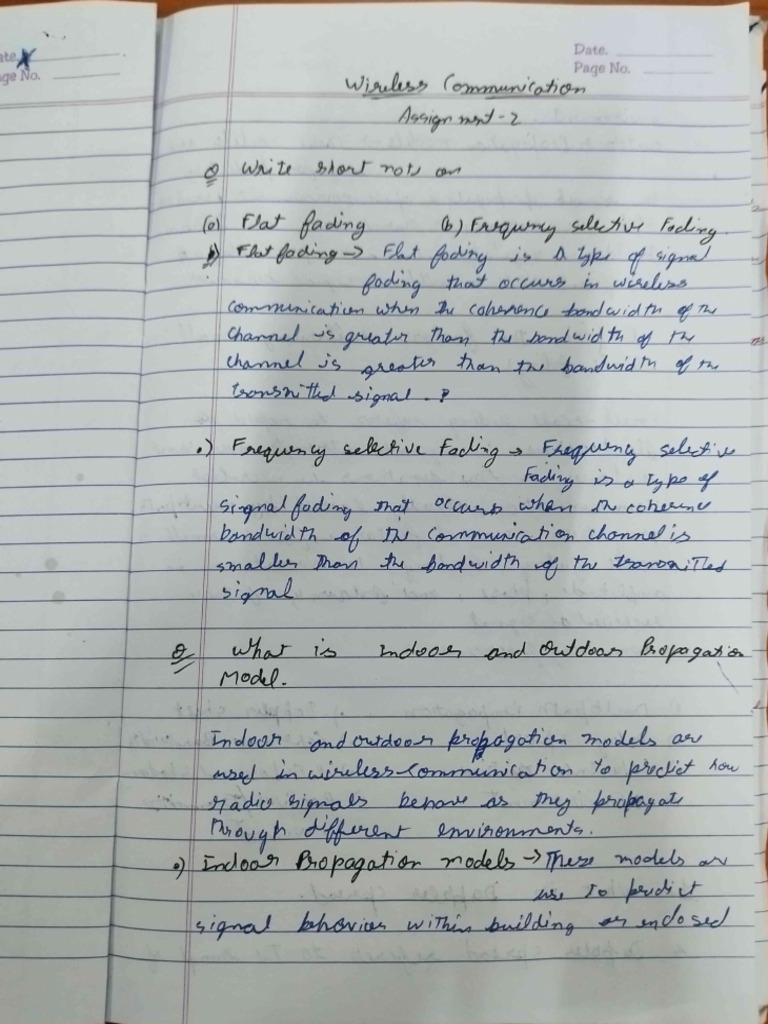 ate
ge No.
Date.
Page No.
Wireless Communication
Assignment-2
Q Write short nots on
(a) Flat fading (b) Frequency selective Fading.
Flat fading → Flat fading is a type of signal
fading that occurs in wireless
communication when the coherence bandwidth of the
channel is greater than the bandwidth of the
channel is greater than the bandwidth of the
transmitted signal.
•) Frequency selective Fading → Frequency selective
Fading is a type of
signal fading that occurs when the coherence
bandwidth of the communication channel is
smaller than the bandwidth of the transmitted
signal
Q What is Indoor and Outdoor Propagation
Model.
Indoor and outdoor propagation models are
used in wireless communication to predict how
radio signals behave as they propagate
through different environments.
•) Indoor Propagation models → These models are
use to predict
signal behavior within building or enclosed